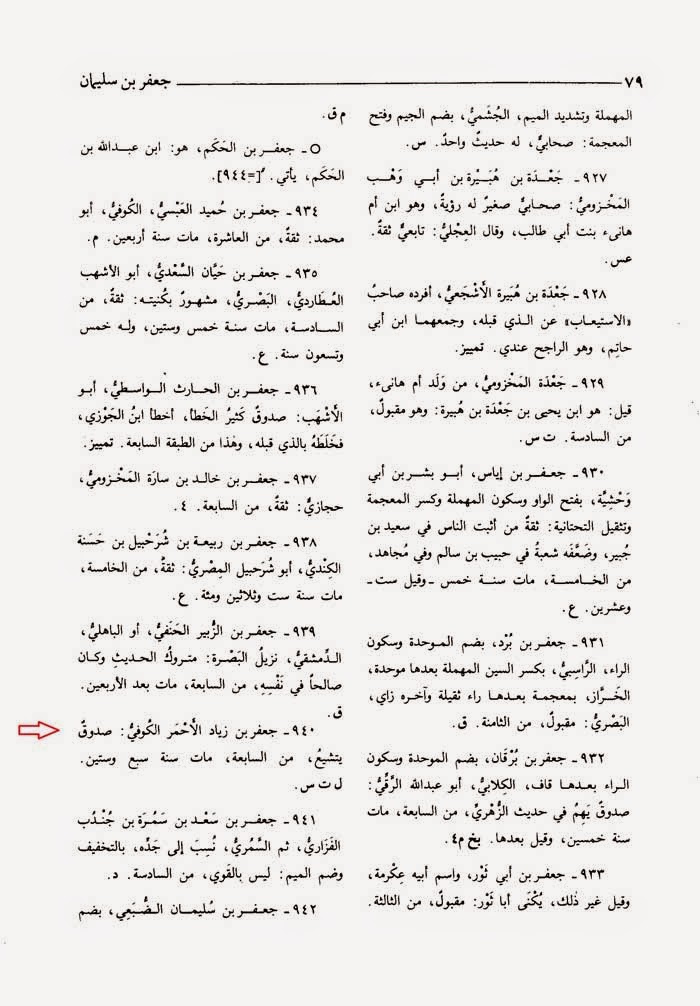 ٧٩ جعفر بن سليمان
المهملة وتشديد الميم، الجُشَميُّ، بضم الجيم وفتح
المعجمة: صحابيٌّ، له حديثٌ واحدٌ. س.
٩٢٧ـ جَعْدَة بن هُبَيْرة بن أبي وَهْب
المَخْزوميُّ: صحابيٌّ صغيرٌ له رؤيةٌ، وهو ابن أم
هانىء بنت أبي طالب، وقال العِجْليُّ: تابعيٌّ ثقةٌ.
عس.
٩٢٨ـ جَعْدَة بن هُبَيرة الأَشْجَعيُّ، أفرده صاحبُ
«الاستيعاب» عن الذي قبله، وجمعهما ابن أبي
حاتِم، وهو الراجح عندي. تمييز.
٩٢٩ـ جَعْدَة المَخْزوميُّ، من وَلَد أم هانىء،
قيل: هو ابن يحيى بن جَعْدَة بن هُبيرة: وهو مقبولٌ،
من السادسة. ت س.
٩٣٠ـ جعفر بن إياس، أبو بشر بن أبي
وَحْشِيَّة، بفتح الواو وسكون المهملة وكسر المعجمة
وتثقيل التحتانية: ثقةٌ من أثبت الناس في سعيد بن
جُبير، وضَعَّفَه شعبةُ في حبيب بن سالم وفي مُجاهد،
من الخامسة، مات سنة خمس ـ وقيل ست ـ
وعشرين. ع.
٩٣١ـ جعفر بن بُرْد، بضم الموحدة وسكون
الراء، الرَّاسِبيُّ، بكسر السين المهملة بعدها موحدة،
الخَرَّاز، بمعجمة بعدها راء ثقيلة وآخره زاي،
البَصْريُّ: مقبولٌ، من الثامنة. ق.
٩٣٢ـ جعفر بن بُرْقَان، بضم الموحدة وسكون
الراء بعدها قاف، الكِلابيُّ، أبو عبدالله الرَّقِّيُّ:
صدوقٌ يَهِمُ في حديث الزُّهْريِّ، من السابعة، مات
سنة خمسين، وقيل بعدها. بخ م٤.
٩٣٣ـ جعفر بن أبي ثَوْر، واسم أبيه عِكْرمة،
وقيل غير ذلك، يُكْنَى أبا ثَوْر: مقبولٌ، من الثالثة.
م ق.
○ـ جعفر بن الحَكَم، هو: ابن عبدالله بن
الحَكَم، يأتي. [=٩٤٤].
٩٣٤ـ جعفر بن حُميد العَبْسيُّ، الكُوفيُّ، أبو
محمد: ثقةٌ، من العاشرة، مات سنة أربعين. م.
٩٣٥ـ جعفر بن حَيَّان السَّعْديُّ، أبو الأشهب
العُطَارديُّ، البَصْريُّ، مشهورٌ بكُنيته: ثقةٌ، من
السادسة، مات سنة خمس وستين، وله خمس
وتسعون سنة. ع.
٩٣٦ـ جعفر بن الحارث الواسطيُّ، أبو
الأَشْهَب: صدوقٌ كَثيْرُ الخَطأ، أخطأ ابنُ الجَوْزي،
فخَلَطَهُ بالذي قبله، وهٰذا من الطبقة السابعة. تمييز.
٩٣٧ـ جعفر بن خالد بن سارَة المَخْزوميُّ،
حجازيٌّ: ثقةٌ، من السابعة. ٤.
٩٣٨ـ جعفر بن ربيعة بن شُرَحْبيل بن حَسَنة
الكِنْديُّ، أبو شُرَحبيل المِصْريُّ: ثقةٌ، من الخامسة،
مات سنة ست وثلاثين ومئة. ع.
٩٣٩ـ جعفر بن الزُّبير الحَنَفيُّ، أو الباهليُّ،
الدِّمشقيُّ، نزيلُ البَصْرة: متروكُ الحديثِ وكان
صالحاً في نَفْسِهِ، من السابعة، مات بعد الأربعين.
ق.
٩٤٠ـ جعفر بن زياد الأَحْمَر الكُوفيُّ: صدوقٌ
يتشيعُ، من السابعة، مات سنة سبع وستين.
ل ت س.
٩٤١ـ جعفر بن سَعْد بن سَمُرَة بن جُنْدُب
الفَزَاريُّ، ثم السَّمُريُّ، نُسِبَ إلى جَدِّه، بالتخفيف
وضم الميم: ليس بالقَوي، من السادسة. د.
٩٤٢ـ جعفر بن سُليمان الضُّبَعِي، بضم